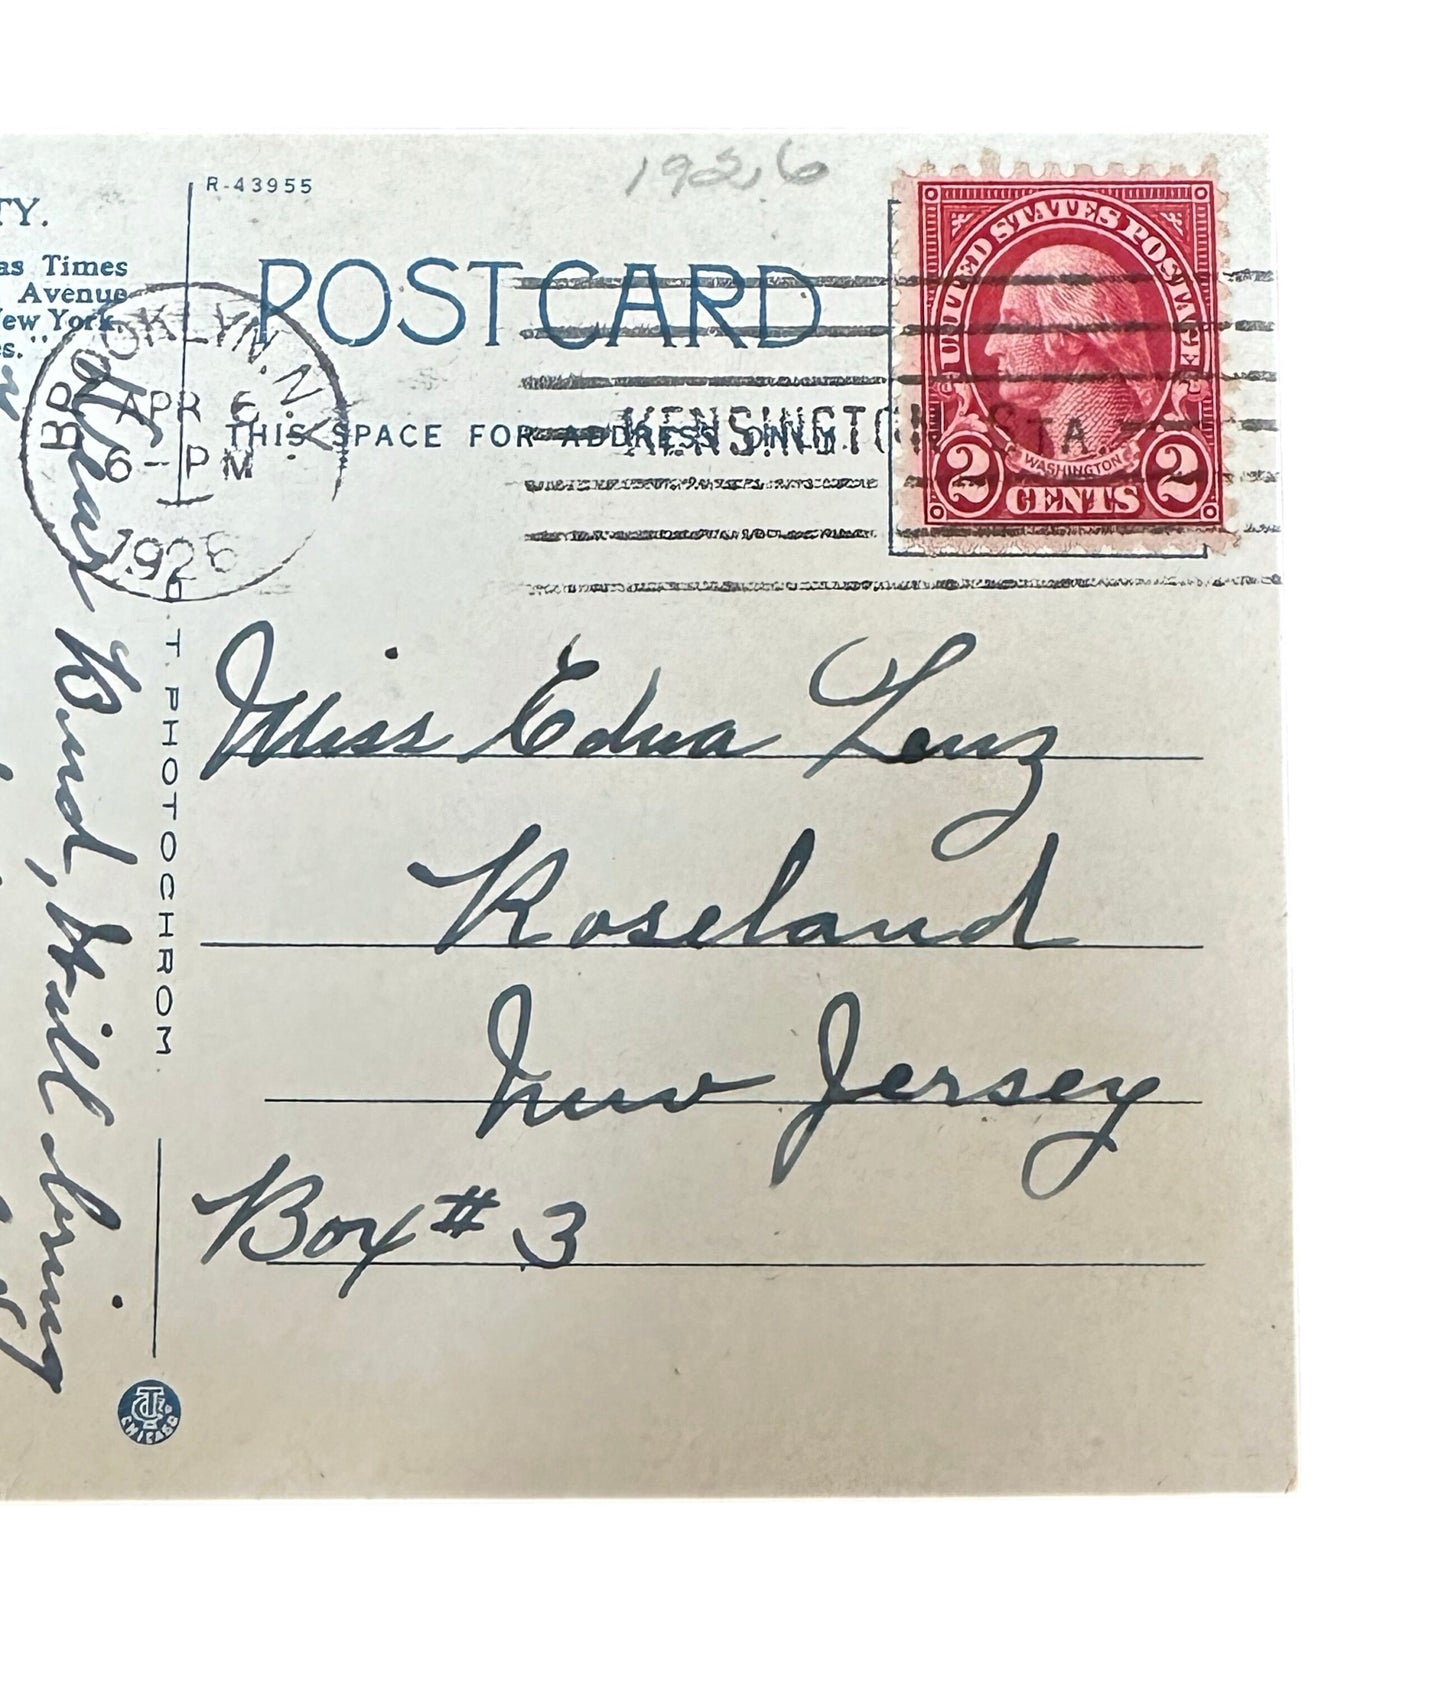 TY.
as Times
Avenue
New York.
es."
R-43955
1926
POST CARD
THIS SPACE FOR ADDRESS ONLY
BROOKLYN. N.Y.
APR 6
6-PM
1926
KENSINGTON STA.
UNITED STATES POSTAGE
WASHINGTON
2 CENTS 2
Miss Edna Lenz
Roseland
New Jersey
Box # 3
PHOTOCHROM
Kind, Will bring
CHICAGO